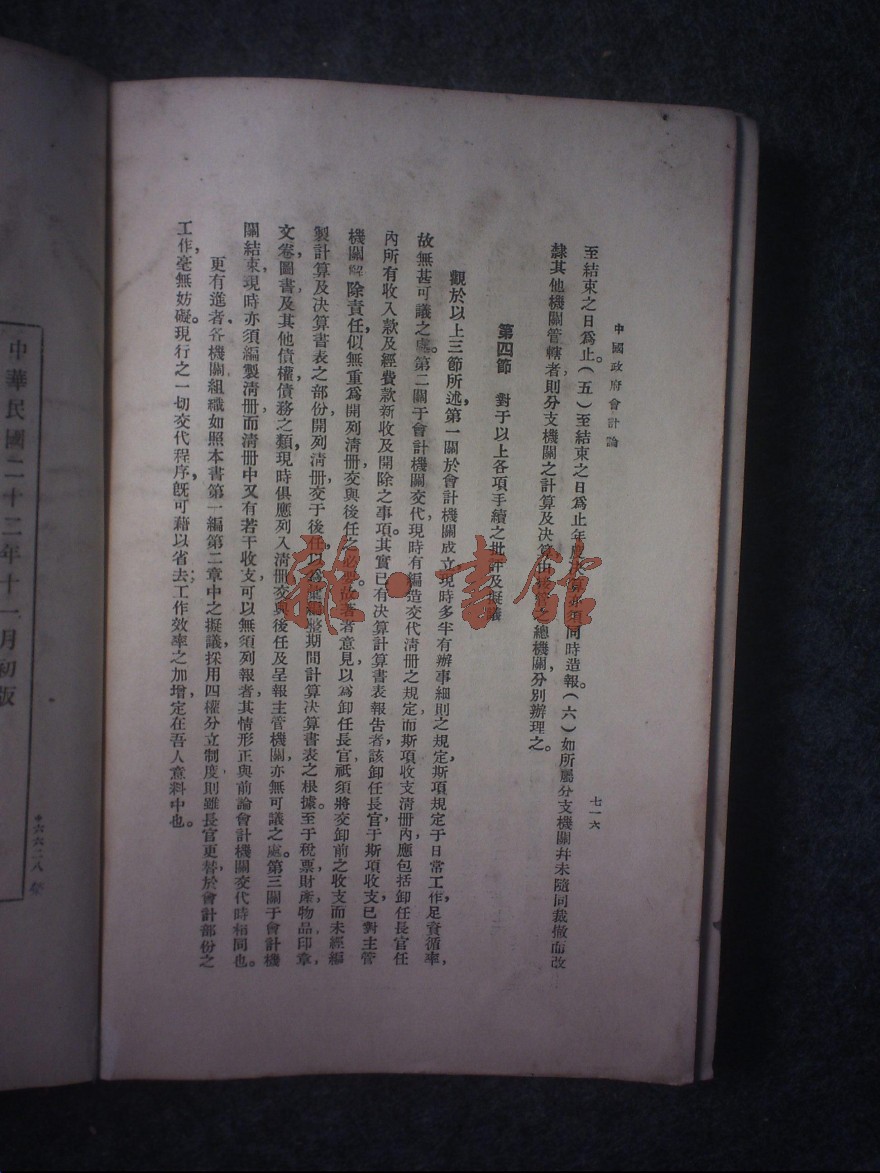 中國政府會計論
七一六
至結束之日爲止。(五)至結束之日爲止年度決算亦須同時造報。(六)如所屬分支機關幷未隨同裁撤而改
隸其他機關管轄者則分支機關之計算及決算由接管之總機關分別辦理之。
第四節 對于以上各項手續之批評及擬議
觀於以上三節所述,第一關於會計機關成立現時多半有辦事細則之規定,斯項規定于日常工作,足資循率,
故無甚可議之處。第二關于會計機關交代現時有編造交代清册之規定而斯項收支清册內應包括卸任長官任
內所有收入款及經費款新收及開除之事項。其實已有決算計算書表報告者,該卸任長官于斯項收支,已對主管
機關解除責任,似無重爲開列清册交與後任之必要。故著者意見,以爲卸任長官祇須將交卸前之收支而未經編
製計算及決算書表之部份開列清册,交于後任,以爲他編整期間計算決算書表之根據。至于稅票財產物品印章,
文卷圖書及其他債權債務之類現時俱應列入清册交與後任及呈報主管機關亦無可議之處。第三關于會計機
關結束,現時亦須編製清册而清册中又有若干收支可以無須列報者,其情形正與前論會計機關交代時相同也。
更有進者,各機關組織如照本書第一編第二章中之擬議採用四權分立制度則雖長官更替於會計部份之
工作,毫無妨礙。現行之一切交代程序,既可藉以省去;工作效率之加增,定在吾人意料中也。
中華民國二十二年十一月初版
六六二八
雜·書館